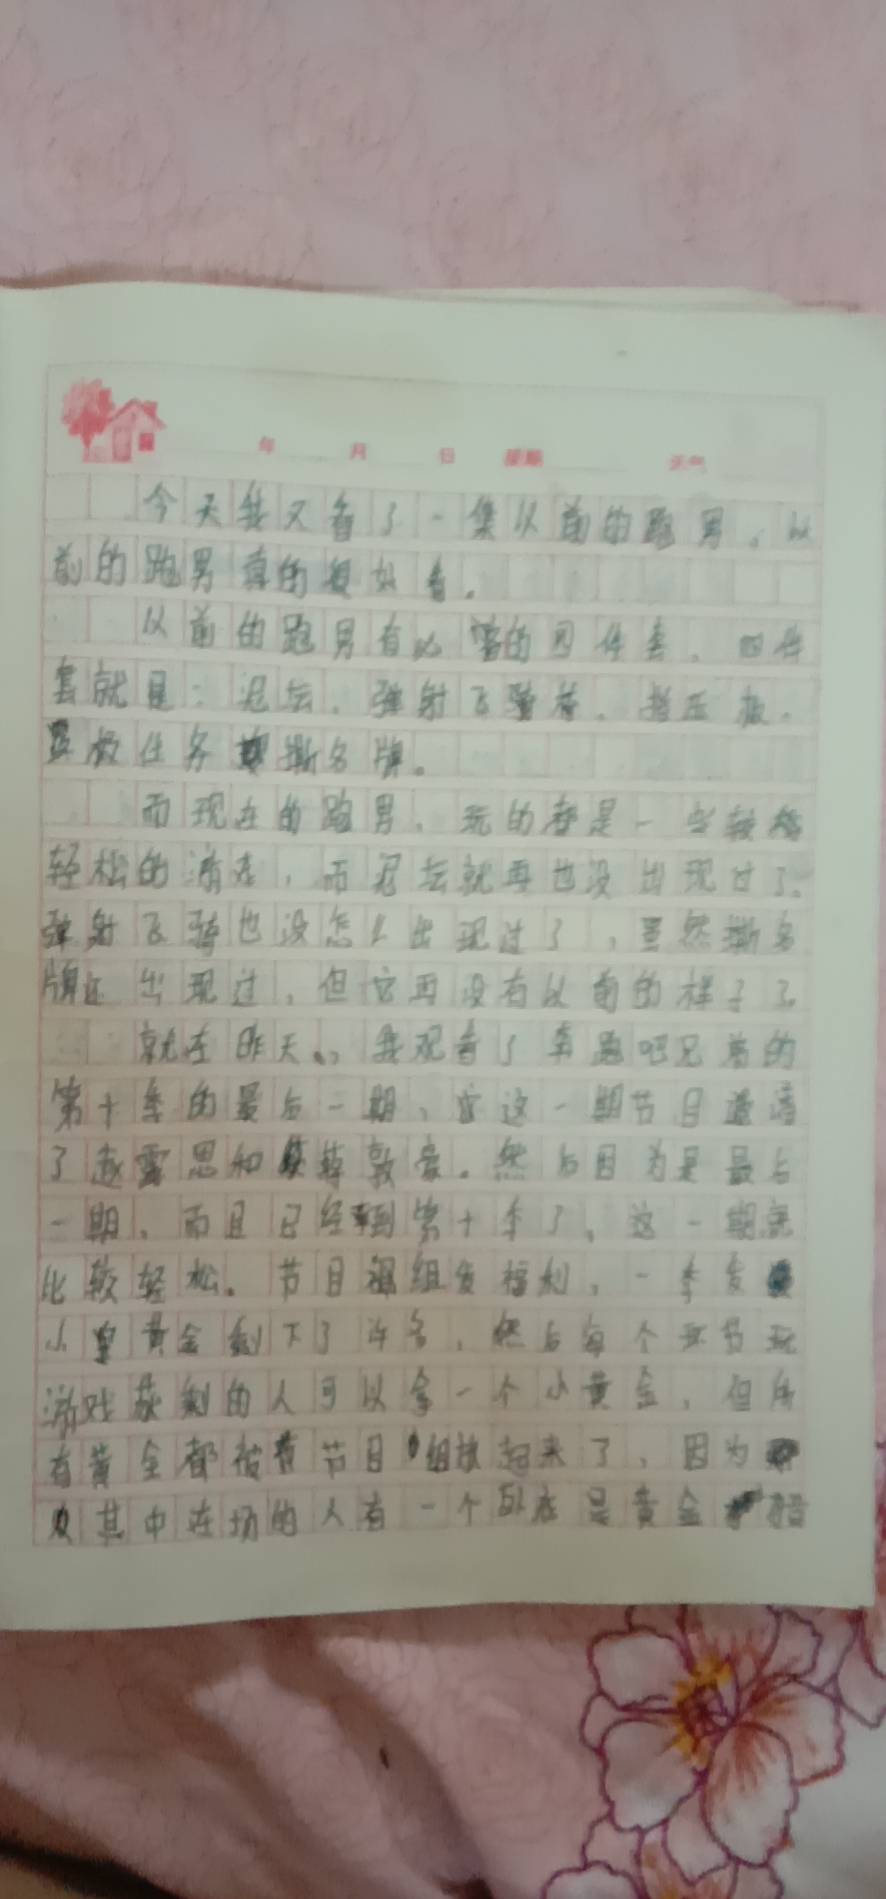 年 月 日 星期 天气
今天我又看了一集以前的跑男。以
前的跑男真的很好看。
以前的跑男有必 的四件套,四件
套就是:泥坛、弹射飞 椅、指压板、
任务 撕名牌。
而现在的跑男,玩的都是一些较
轻松的游戏,而泥坛就再也没出现过了。
弹射飞 也没怎么出现过了,虽然撕名
牌还出现过,但它再没有以前的样子了。
就在昨天,我观看了奔跑吧兄弟的
第十季的最后一期,这一期节目邀请
了赵雷 思和 敦豪。然后因为是最后
一期,而且已经到第十季了,这一期
比较轻松。节目组发福利,一季发
小黄金剩下了许多,然后每个环节玩
游戏获剩的人可以拿一个小黄金,但所
有黄金都被 节目组放起来了,因为
其中在场的人有一个卧底是黄金